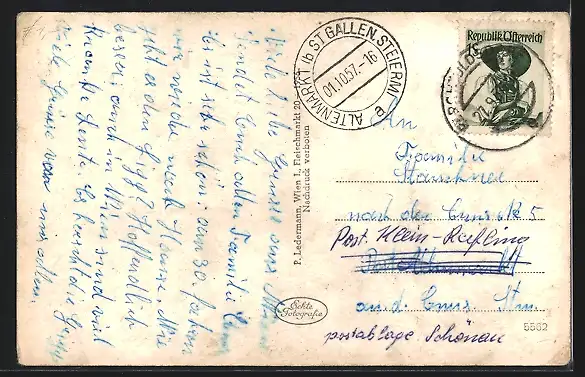 Viele liebe Grüsse aus Wien
sendet Euch allen Familie
Es ist sehr schön. am 30. fahren
wir wieder nach Hause. Wie
geht es den Hoffentlich
besser. auch in Wien sind viel
kranke Leute. Es herrscht die Grippe
Viele Grüsse von uns allen.
P. Ledermann, Wien I., Fleischmarkt 20
Nachdruck verboten
ALTENMARKT i/b ST GALLEN, STEIERM
01.10.57.-16
e
Republik Österreich
1S
An
Familie
nach der Enns 5
Post. Klein-Reifling
a. d. Enns Stm.
postablage Schönau
Echte
Fotografie
5562